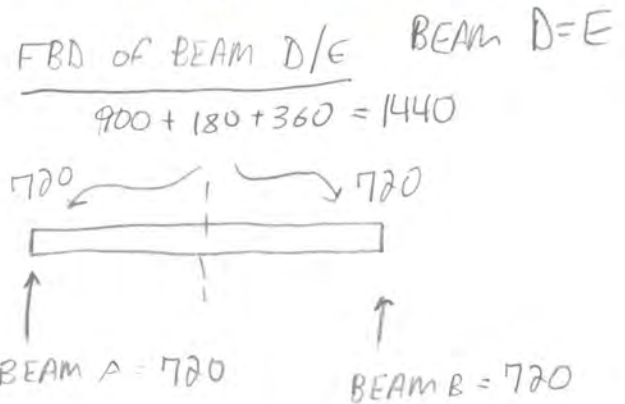 FBD OF BEAM D/E
BEAM D=E
900 + 180 + 360 = 1440
720
720
BEAM A = 720
BEAM B = 720